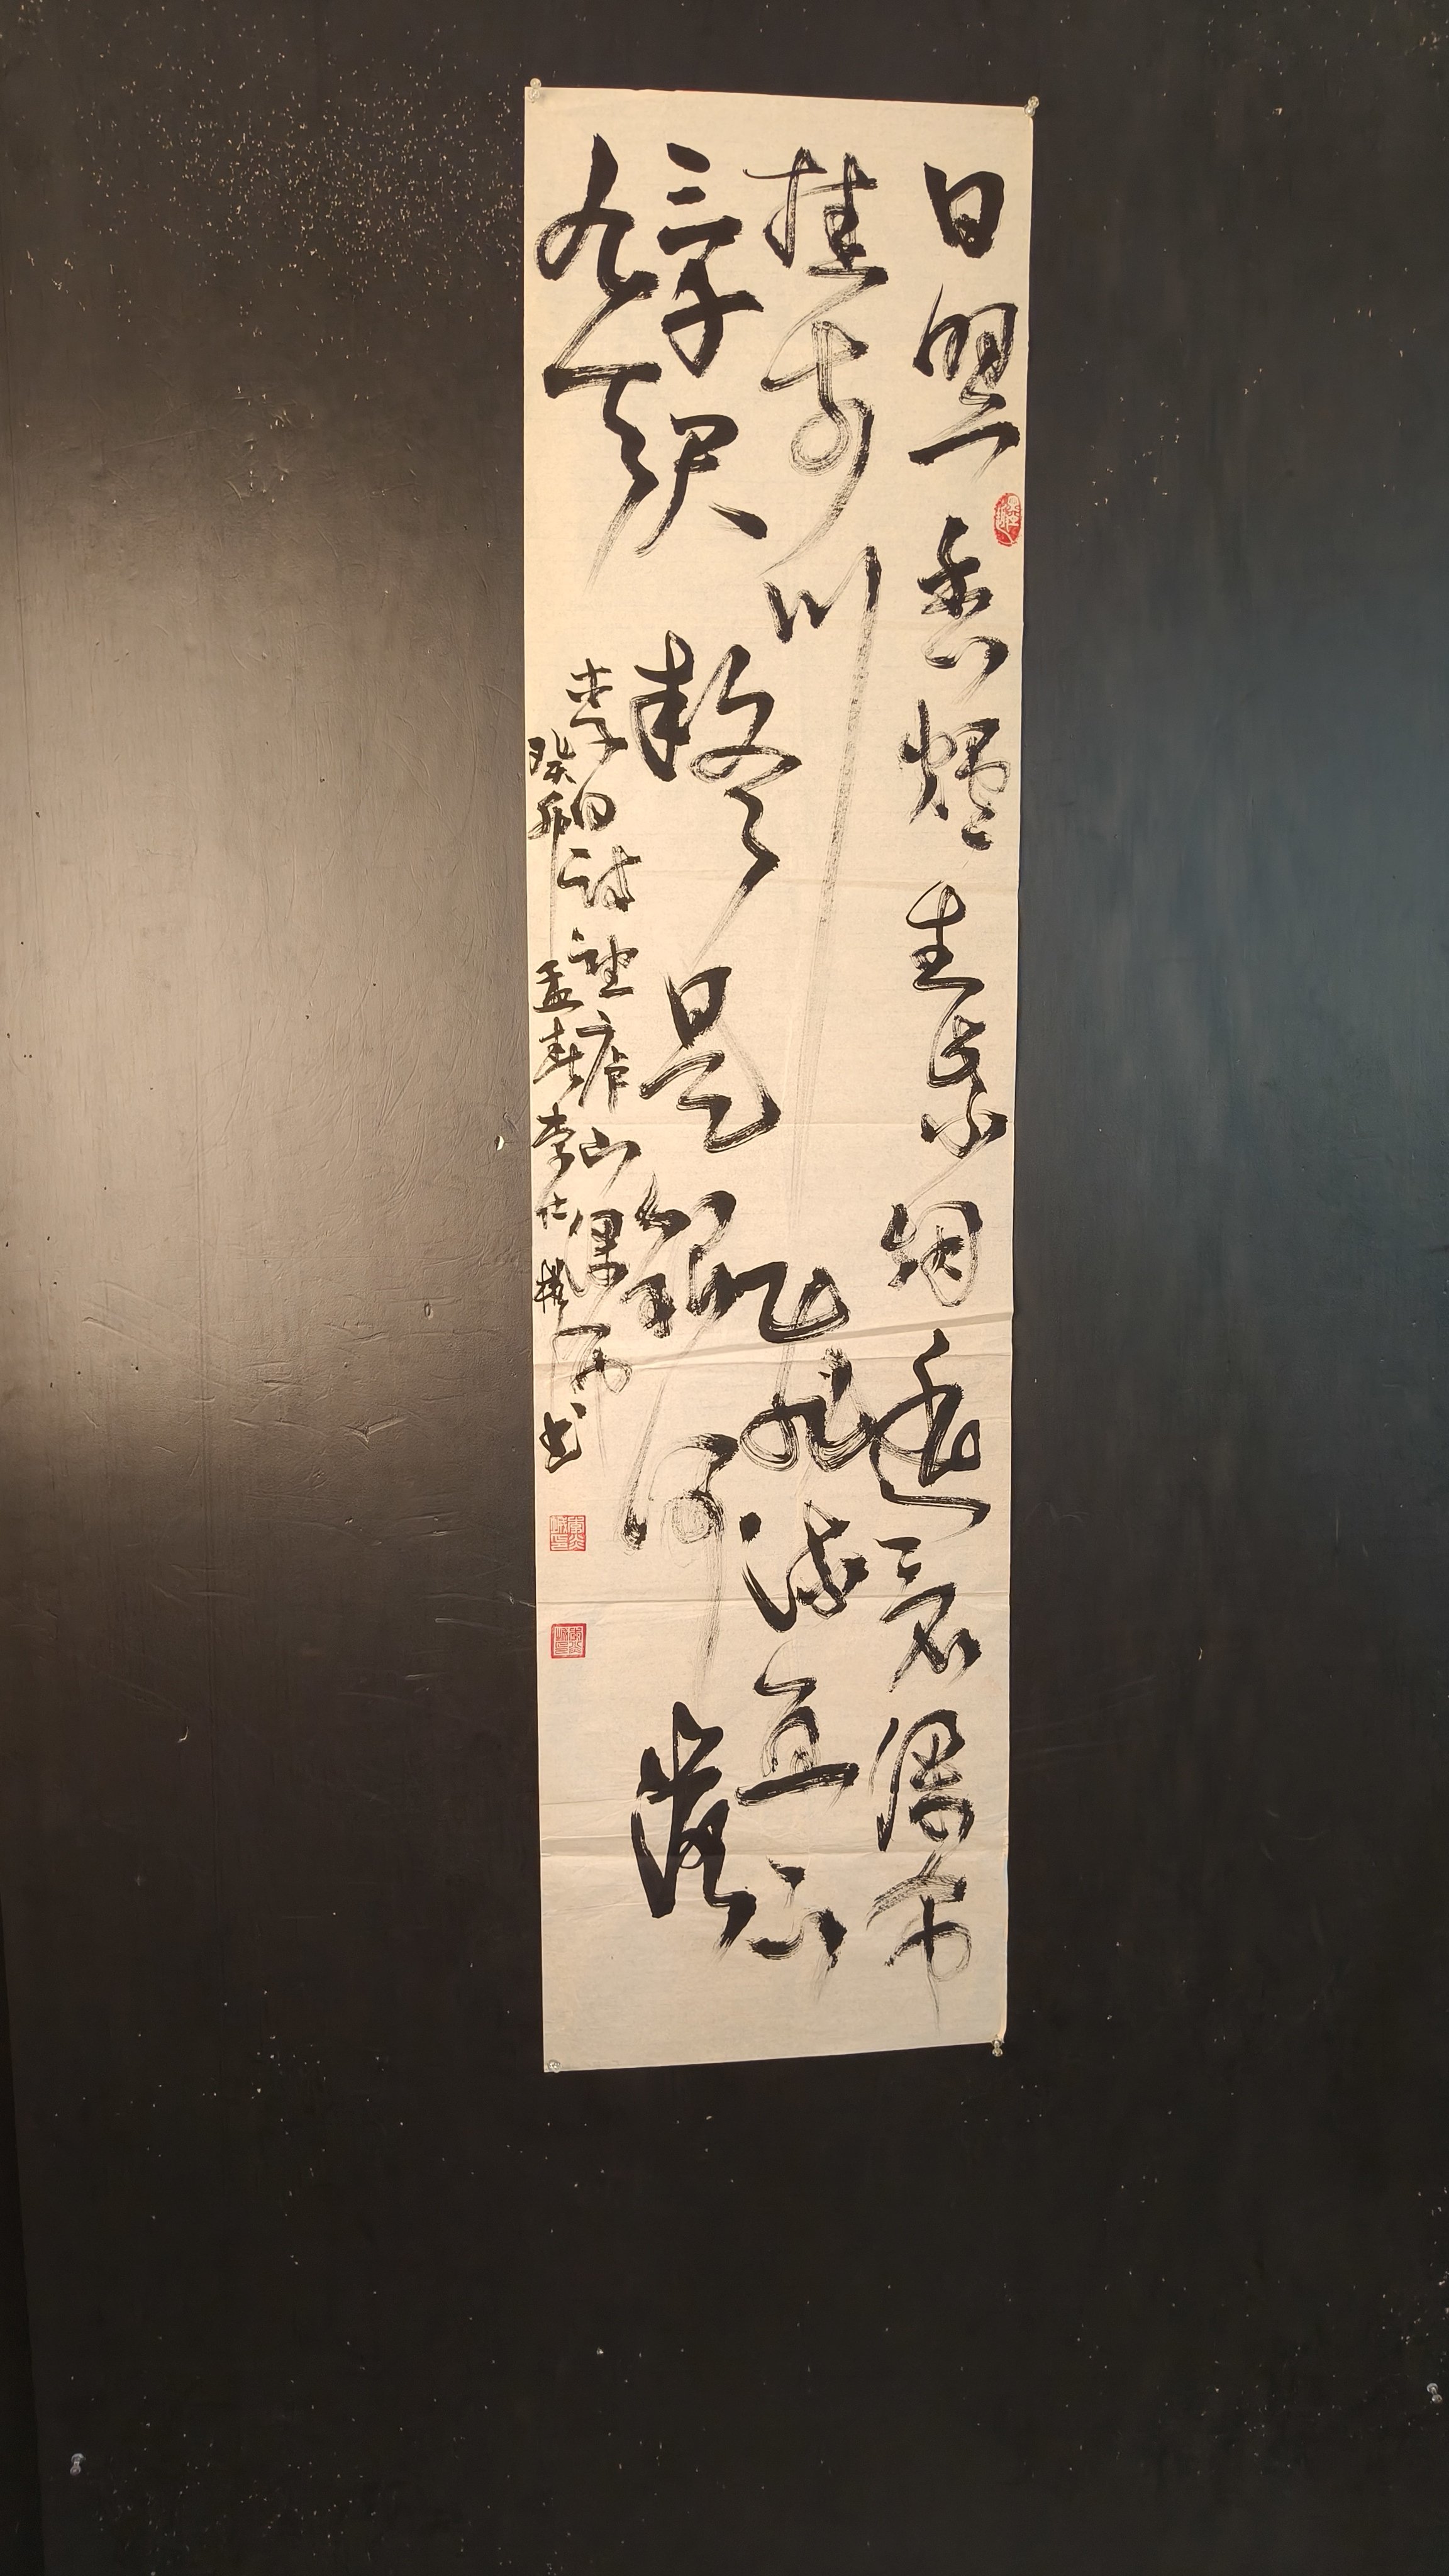 日照香爐生紫烟遥看瀑布
挂前川飛流直下
三千尺疑是銀河落
九天
李白詩望庐山瀑布
癸卯孟春李仕書